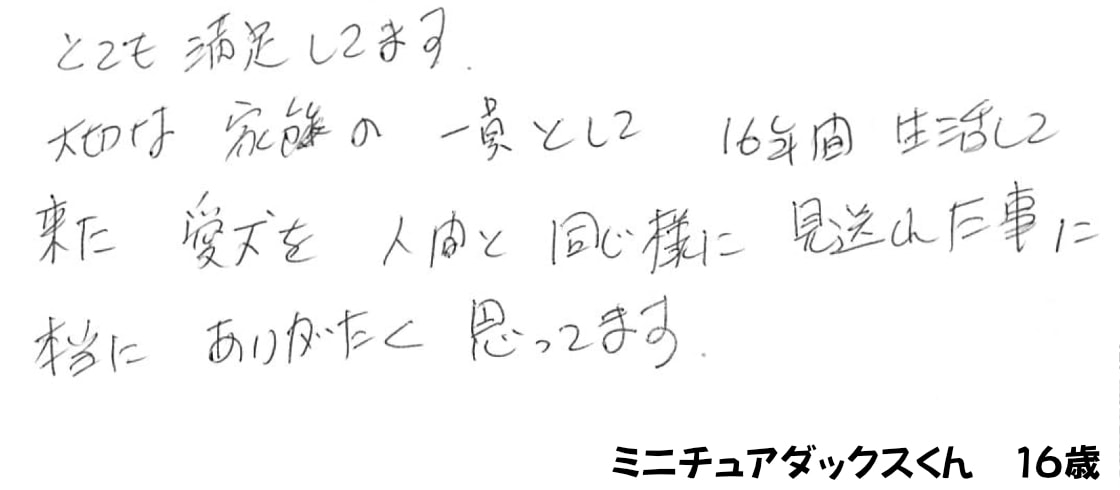 とても満足してます.
大切な家族の一員として 16年間 生活して
来た 愛犬を 人間と 同じ様に 見送れた事に
本当に ありがたく 思ってます.
ミニチュアダックスくん 16歳